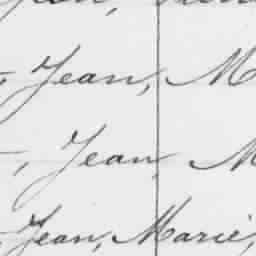 Jean, M
, Jean, M
Jean, Marie,